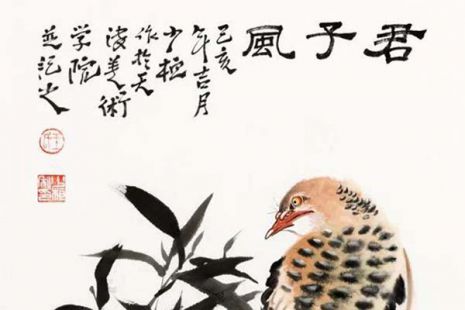 君子風
己亥
年吉月
少極
作於天
津美術
學院
並記之